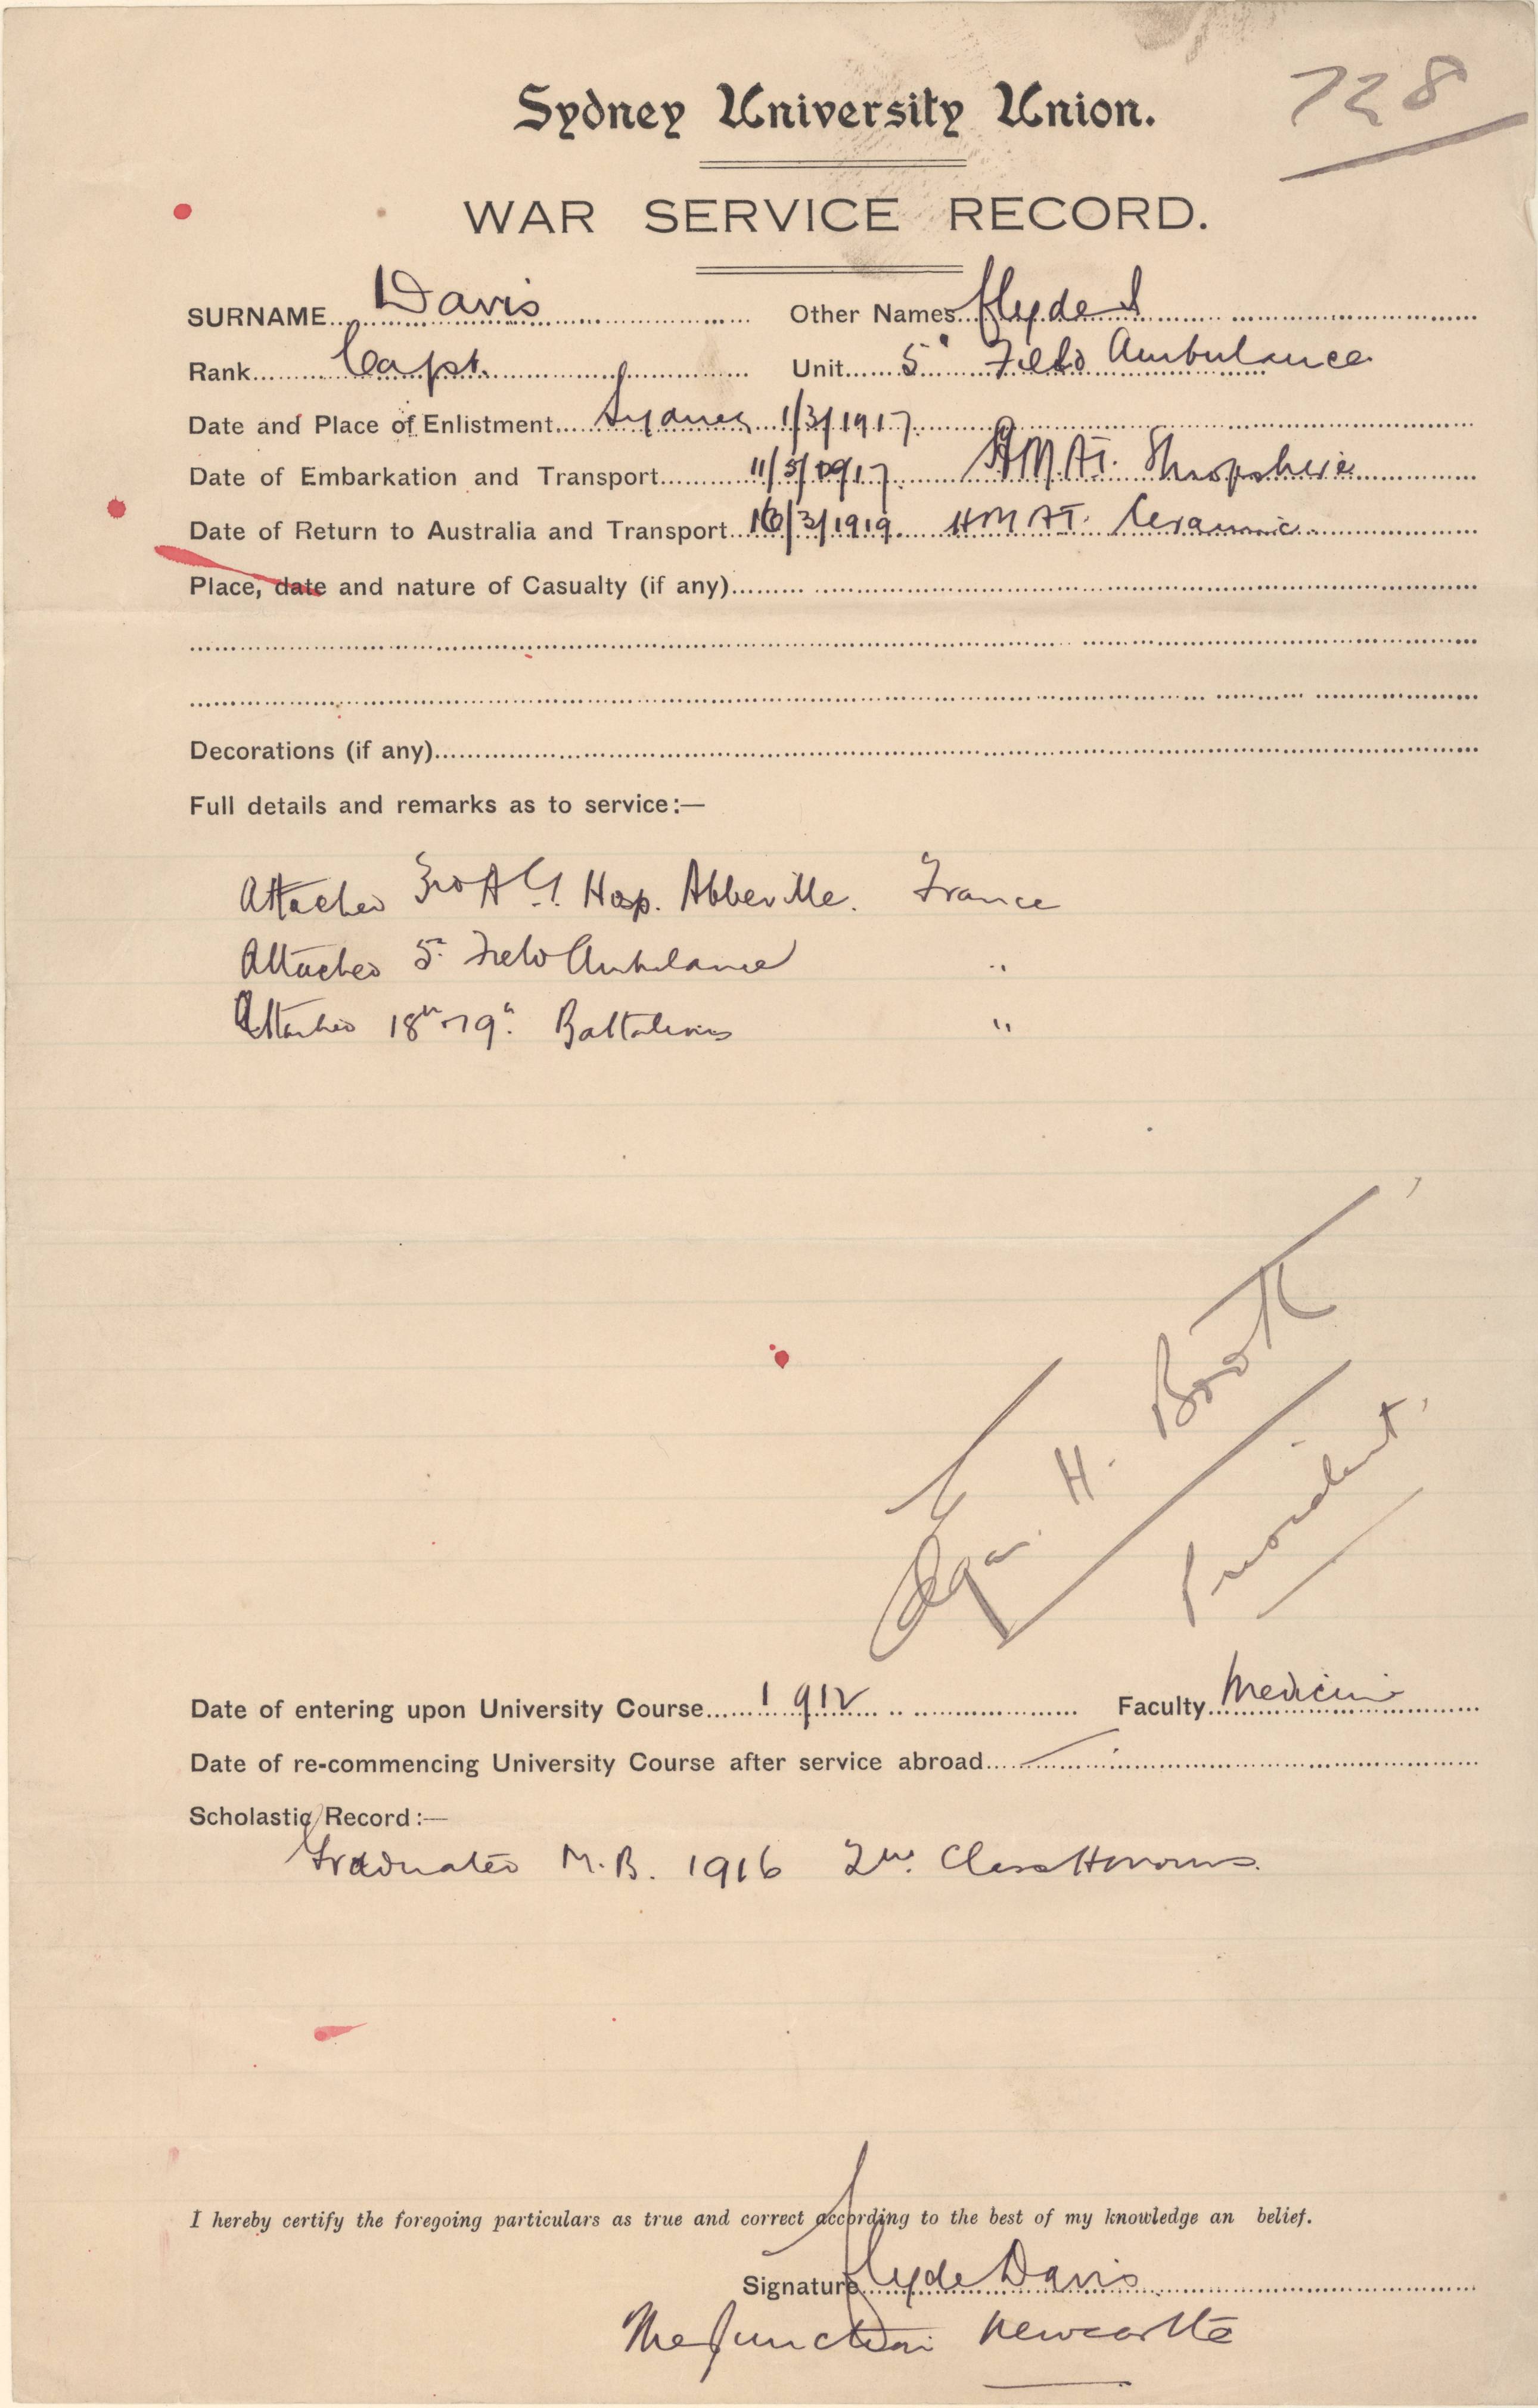 728
Sydney University Union.
WAR SERVICE RECORD.
SURNAME Davis Other Names Clyde I
Rank Capt. Unit 5th Field Ambulance
Date and Place of Enlistment Sydney 1/3/1917.
Date of Embarkation and Transport 11/5/1917. HMAT. Shropshire
Date of Return to Australia and Transport 16/3/1919. HMAT. Ceramic
Place, date and nature of Casualty (if any)
Decorations (if any)
Full details and remarks as to service:—
Attached 3rd A.G. Hosp. Abbeville. France
Attached 5th Field Ambulance "
Attached 18th 19th Battalions "
Edgar H. Booth
President.
Date of entering upon University Course 1912 Faculty Medicine
Date of re-commencing University Course after service abroad —
Scholastic Record:—
Graduated M.B. 1916 2nd Class Honours.
I hereby certify the foregoing particulars as true and correct according to the best of my knowledge an belief.
Signature Clyde Davis
The Junction Newcastle